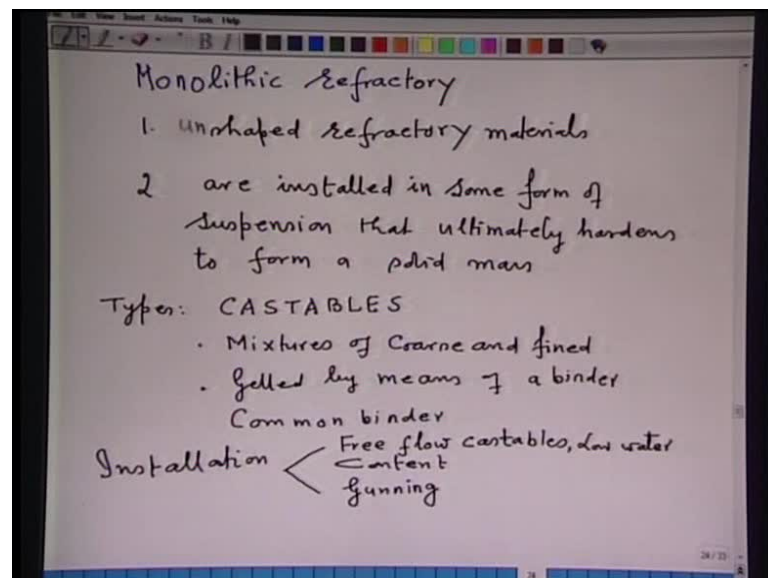 Edit View Insert Actions Tools Help
B I
Monolithic refractory
1. unshaped refractory materials
2 are installed in some form of
suspension that ultimately hardens
to form a solid mass
Types: CASTABLES
. Mixtures of Coarse and fined
. Gelled by means of a binder
Common binder
Installation
Free flow castables, Low water
Content
Gunning
24/33
24